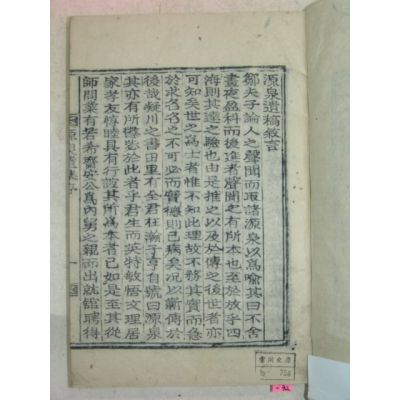 源泉遺稿敘言
鄒夫子論人之聲聞而取諸源泉以爲喻其曰不舍
晝夜盈科而後進者聲聞之有所本也至於放乎四
海則其達之驗也由是推之以及於傳之後世者亦
可知矣世之爲士者惟不知此理故不務其實而急
於求名名之不可必而實德則已病矣况以蘄傳於
後哉凝川之書田里有全君在瀚子亨自號曰源泉
其亦有所於此者乎君生而英特敏悟文理居
家孝友惇睦具有行誼其所爲本者已如是至其從
師問業有若希齋安公爲內舅之親而出就館聘得
源泉遺集序 一
758